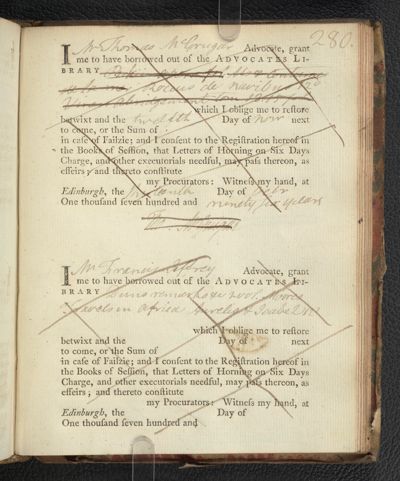 280.
I Mr Thomas McGrugar Advocate, grant
me to have borrowed out of the ADVOCATES LI-
BRARY
Locceus de
which I oblige me to reſtore
betwixt and the twelfth Day of Novr next
to come, or the Sum of
in caſe of Failzie; and I conſent to the Regiſtration hereof in
the Books of Seſſion, that Letters of Horning on Six Days
Charge, and other executorials needful, may paſs thereon, as
effeirs; and thereto conſtitute
my Procurators: Witneſs my hand, at
Edinburgh, the Day of
One thouſand ſeven hundred and ninety six years
I Mr Francis Jeffrey Advocate, grant
me to have borrowed out of the ADVOCATES LI-
BRARY
Travels in Africa
which I oblige me to reſtore
betwixt and the Day of next
to come, or the Sum of
in caſe of Failzie; and I conſent to the Regiſtration hereof in
the Books of Seſſion, that Letters of Horning on Six Days
Charge, and other executorials needful, may paſs thereon, as
effeirs; and thereto conſtitute
my Procurators: Witneſs my hand, at
Edinburgh, the Day of
One thouſand ſeven hundred and